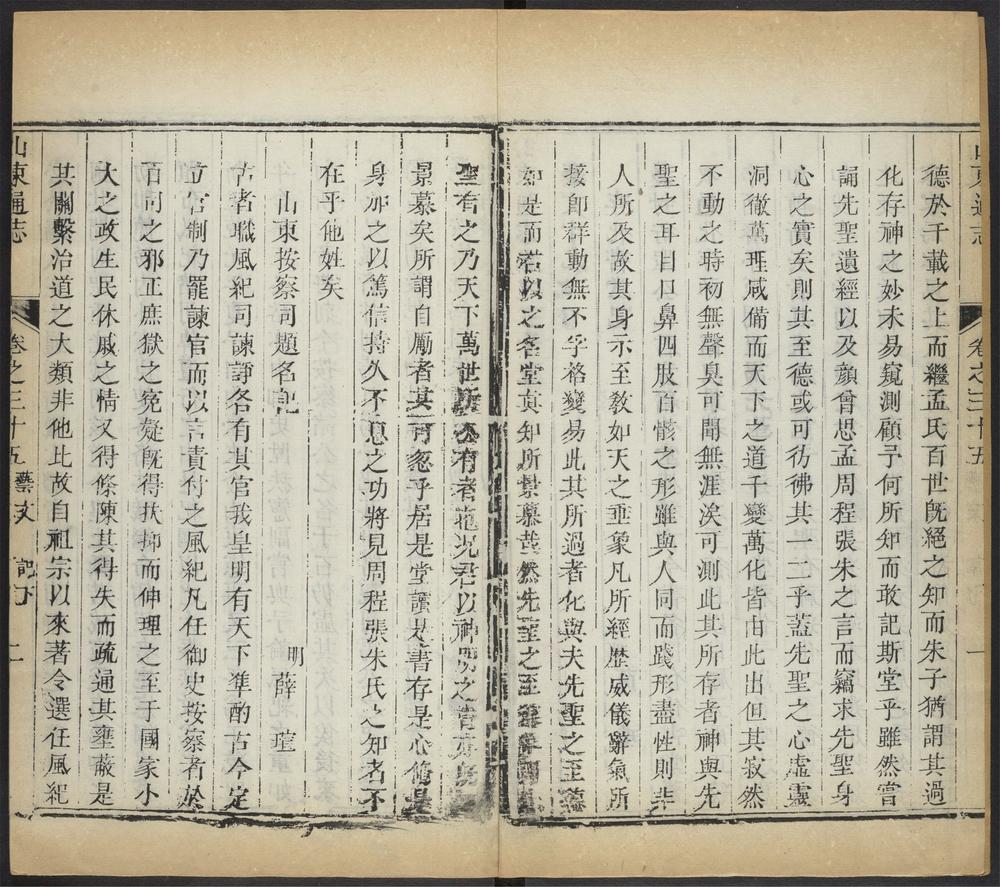 山東通志
卷之三十五
一
德於千載之上而繼孟氏百世旣絕之知而朱子猶謂其過
化存神之妙未易窺測顧予何所知而敢記斯堂乎雖然嘗
誦先聖遺經以及顏曾思孟周程張朱之言而竊求先聖身
心之實矣則其至德或可彷彿其一二乎蓋先聖之心虛靈
洞徹萬理咸備而天下之道千變萬化皆由此出但其寂然
不動之時初無聲臭可聞無涯涘可測此其所存者神與先
聖之耳目口鼻四肢百骸之形雖與人同而踐形盡性則非
人所及故其身示至敎如天之垂象凡所經歴威儀辭氣所
接卽群動無不孚格變易此其所過者化與夫先聖之至德
如是而君以之名堂其知所景慕哉然先聖之至
聖有之乃天下萬世所公有者也况君以神明之
景慕矣所謂自勵者其可忽乎居是堂讀是書存是心脩是
身加之以篤信持久不息之功將見周程張朱氏之知者不
在乎他姓矣
山東按察司題名記
明 薛瑄
古者職風紀司諫諍各有其官我皇明有天下準酌古今定
立官制乃罷諫官而以言責付之風紀凡任御史按察者於
百司之邪正庶獄之寃疑旣得扶抑而伸理之至于國家小
大之政生民休戚之情又得條陳其得失而疏通其壅蔽是
其關繫治道之大類非他比故自祖宗以來著令選任風紀
山東通志
卷之三十五 藝文 記下
二